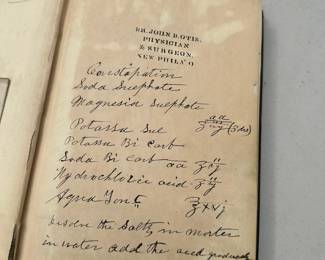 DR. JOHN D. OTIS.
PHYSICIAN
& SURGEON.
NEW PHILA' O
Constipation
Soda Sulphate
Magnesia Sulphate aa
Potassa Sul
Potassa Bi Carb
Soda Bi Carb aa ʒij
Hydrochloric acid ʒij
Aqua Font ℥xvj
the Salts in morter
in water add the acid gradually